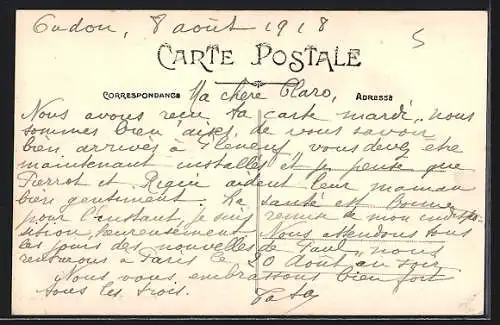 Oudon, 8 août 1918
5
CARTE POSTALE
CORRESPONDANCE Ma chère Claro, ADRESSE
Nous avons reçu ta carte mardi, nous
sommes bien aises de vous savoir
bien arrivés à Pleneuf vous devez être
maintenant installés et je pense que
Pierrot et aident leur maman
bien gentiment. La santé est bonne
pour l'instant, je suis remise de mon indispo-
sition, heureusement. Nous attendons tous
les jours des nouvelles de Paul, nous
rentrons à Paris le 20 Août au soir
Nous vous embrassons bien fort
tous les trois. Tata